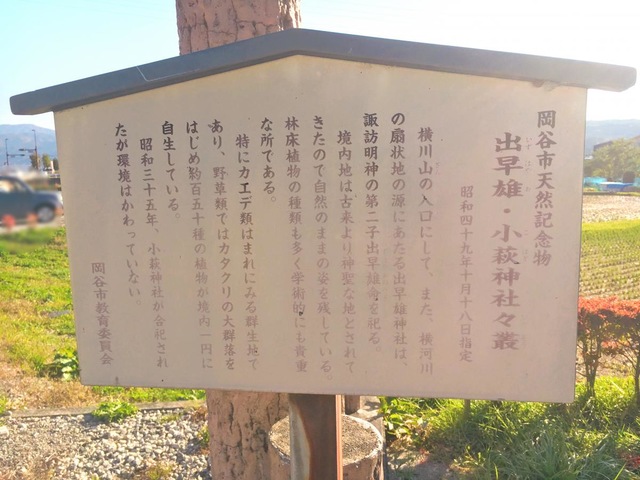 岡谷市天然記念物
出早雄・小萩神社々叢
いずはやお
こはぎ
昭和四十九年十月十八日指定
横川山の入口にして、また、横河川
の扇状地の源にあたる出早雄神社は、
諏訪明神の第二子出早雄命を祀る。
境内地は古来より神聖な地とされて
きたので自然のままの姿を残している。
林床植物の種類も多く学術的にも貴重
な所である。
特にカエデ類はまれにみる群生地で
あり、野草類ではカタクリの大群落を
はじめ約百五十種の植物が境内一円に
自生している。
昭和三十五年、小萩神社が合祀され
たが環境はかわっていない。
岡谷市教育委員会